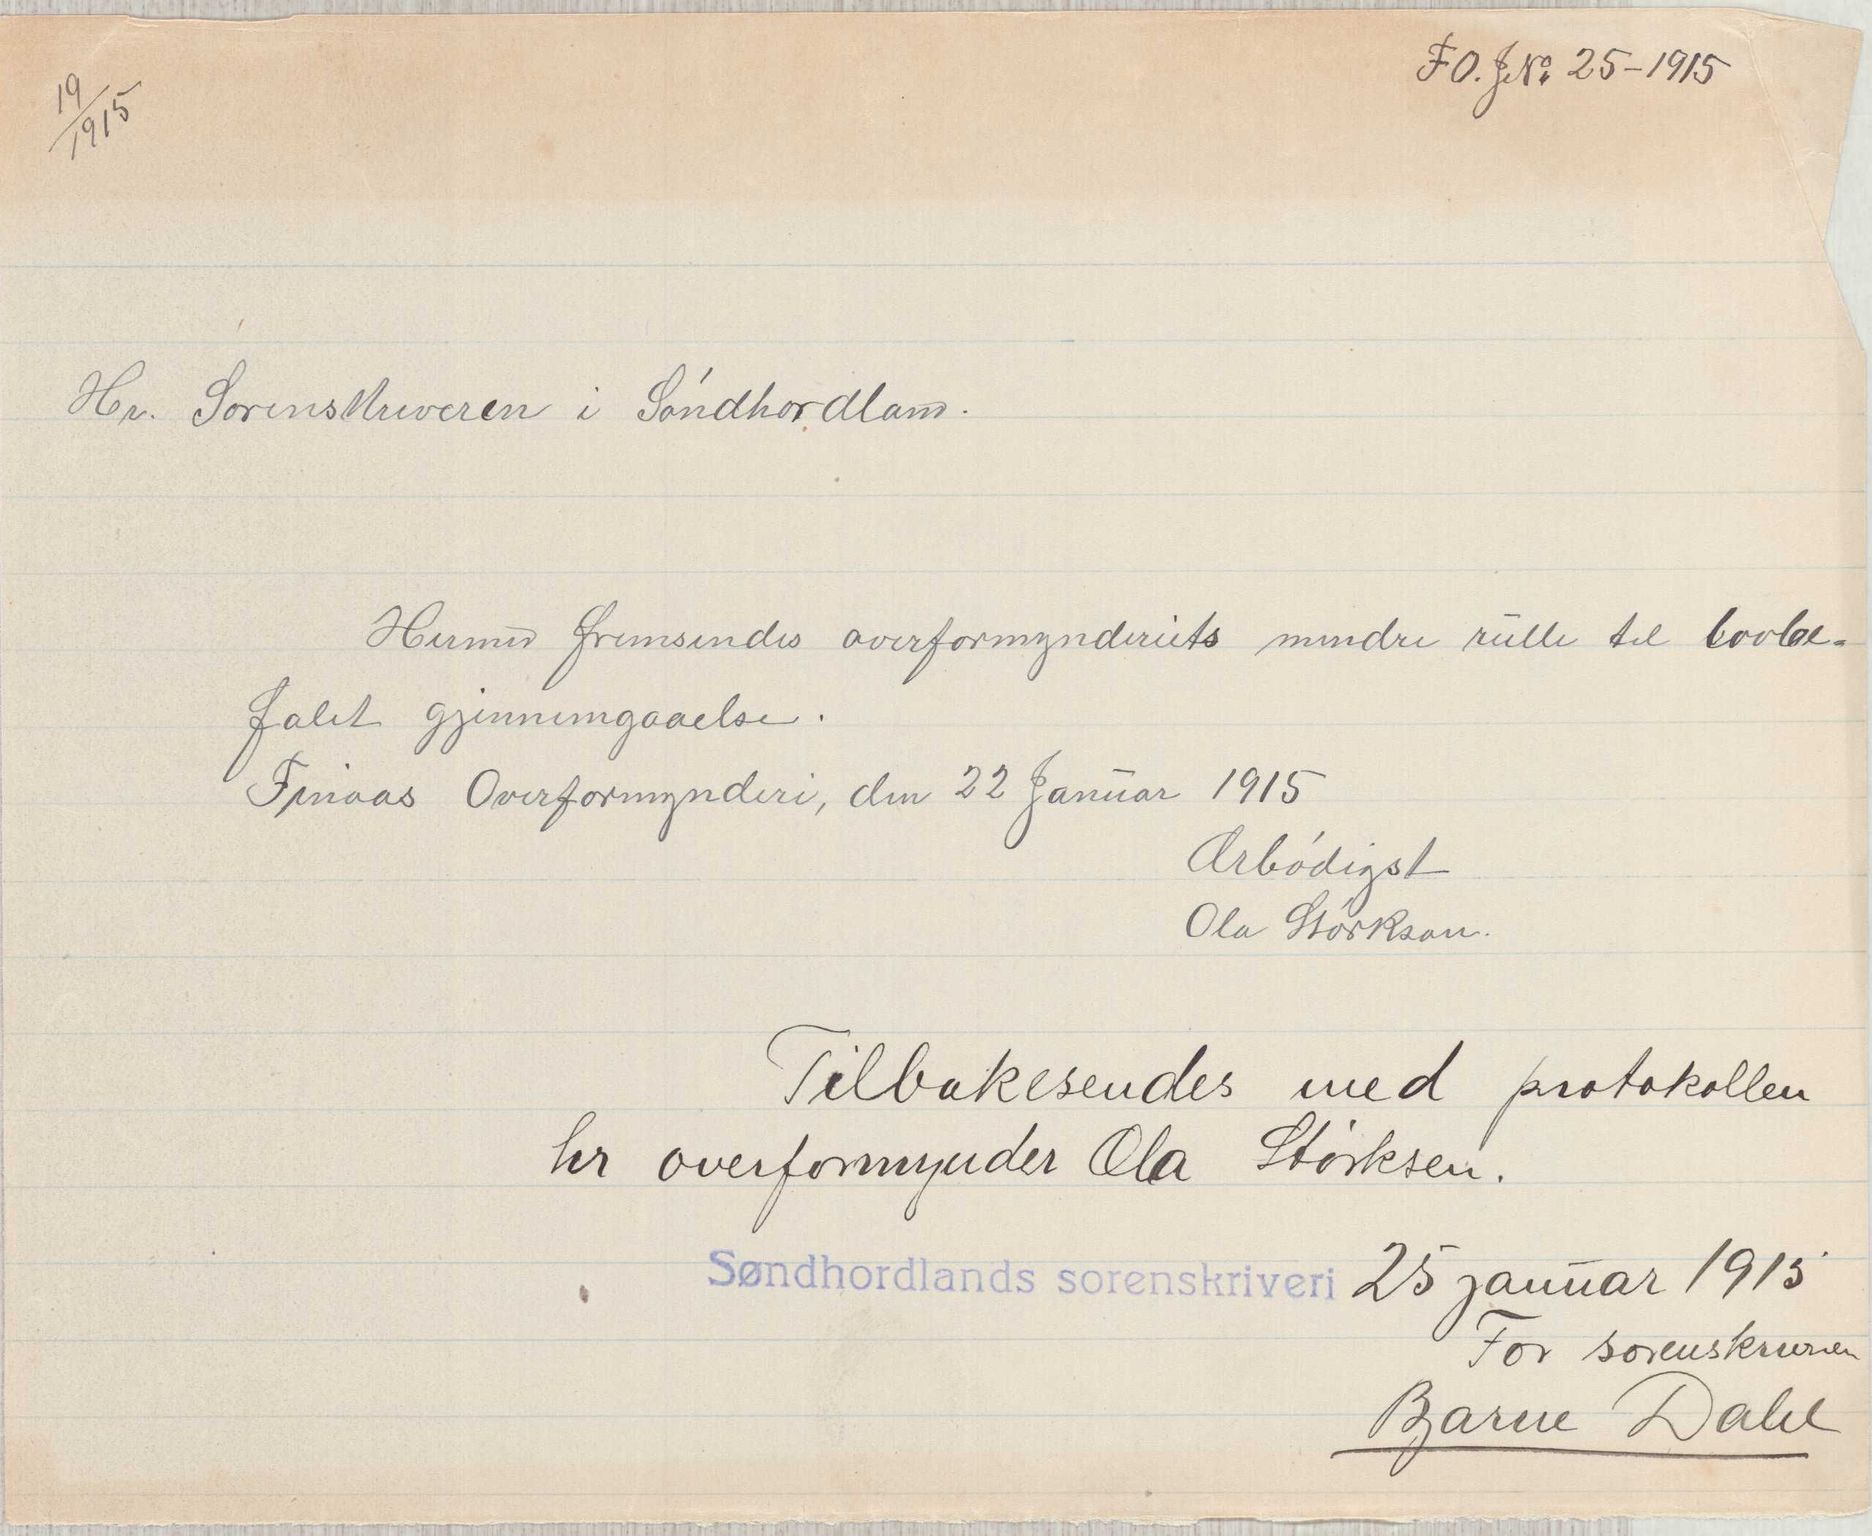 19/1915
F O. J.No. 25-1915
Hr. Sorenskriveren i Söndhordland.
Hermed fremsendes overformynderiets mindre rulle til lovbe-
falet gjennemgaaelse.
Finaas Overformynderi, den 22 Januar 1915
Ærbödigst
Ola Störkson.
Tilbakesendes med protokollen
hr overformynder Ola Störksen.
Søndhordlands sorenskriveri 25 januar 1915
For sorenskriveren
Bjarne Dahl